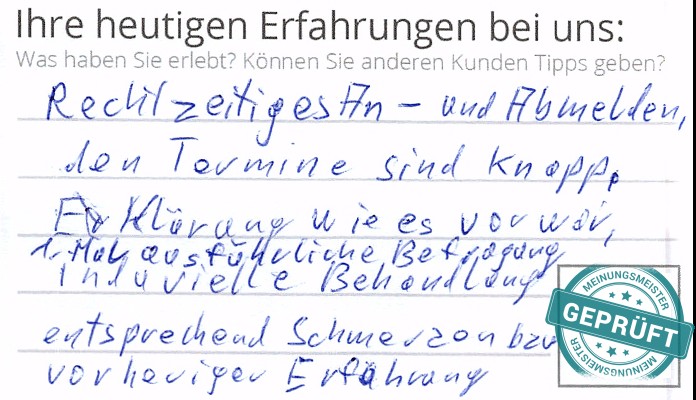 Ihre heutigen Erfahrungen bei uns:
Was haben Sie erlebt? Können Sie anderen Kunden Tipps geben?
Rechtzeitiges An- und Abmelden,
den Termine sind knapp,
Erklärung wie es vor war,
1. Mal ausführliche Befragung
Induvielle Behandlung
entsprechend Schmerzen bzw
vorheriger Erfahrung
MEINUNGSMEISTER
GEPRÜFT
MEINUNGSMEISTER